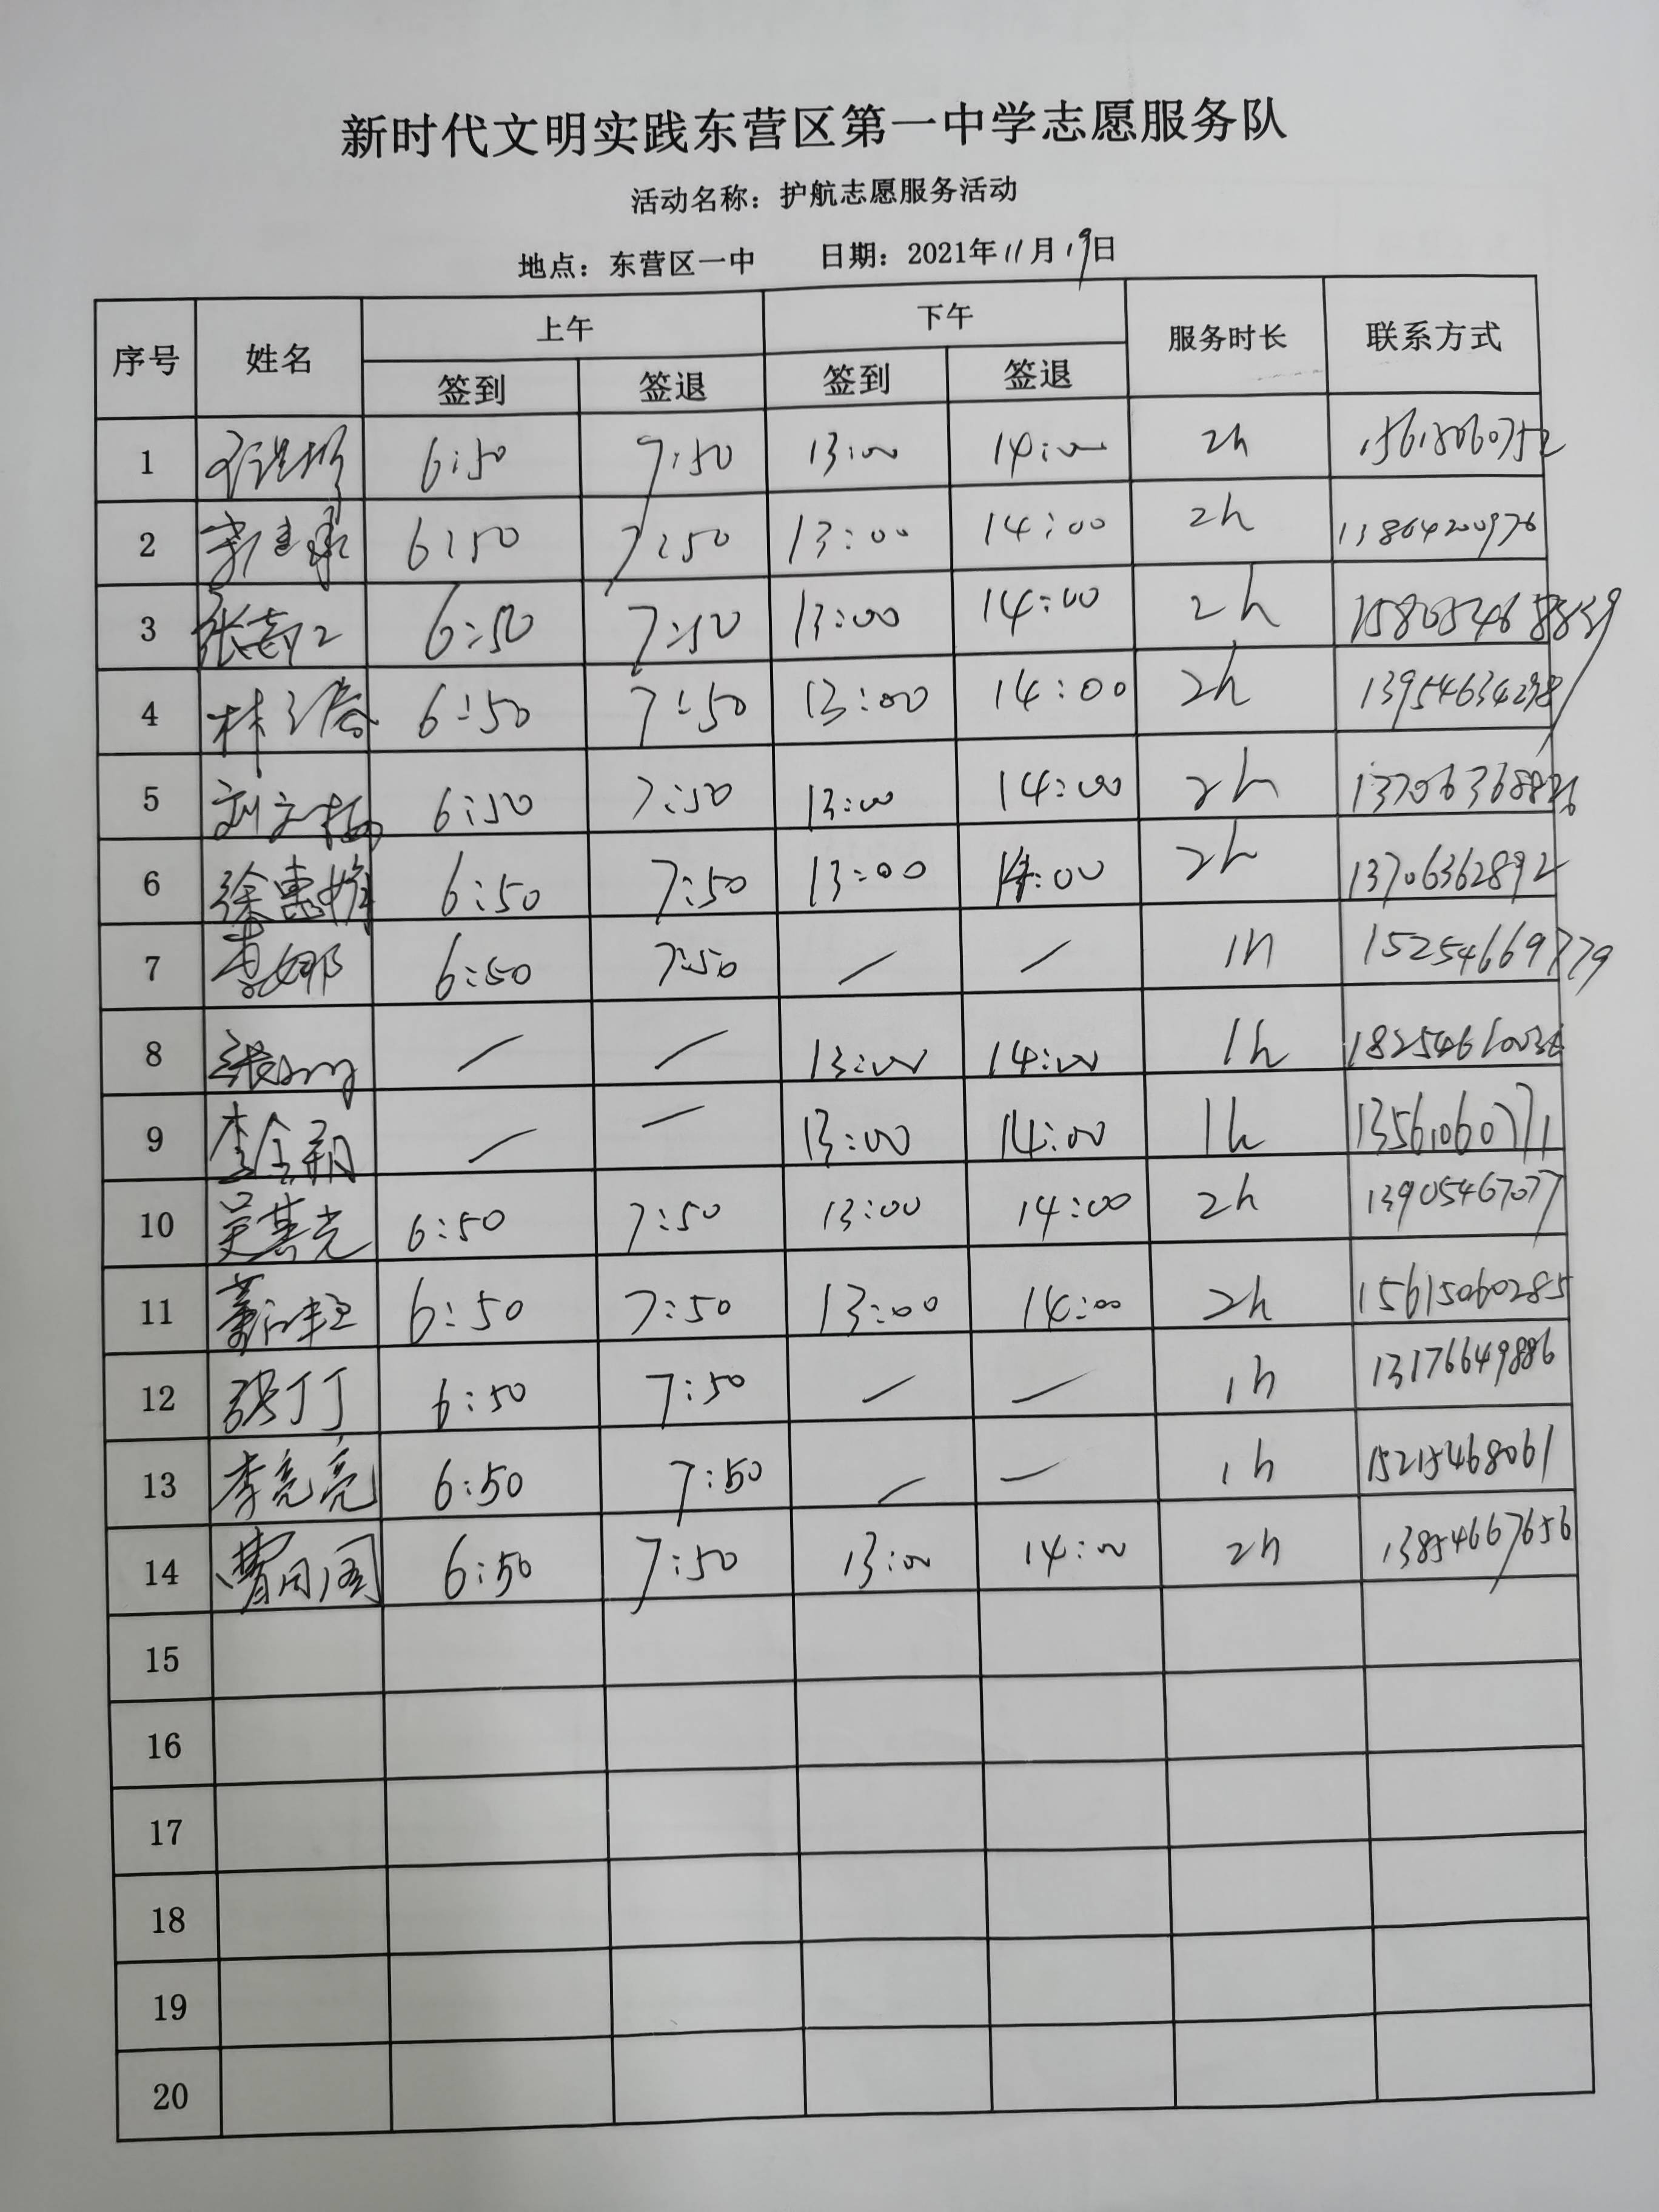 新时代文明实践东营区第一中学志愿服务队
活动名称：护航志愿服务活动
地点：东营区一中 日期：2021年11月19日
序号 姓名 上午 下午 服务时长 联系方式
签到 签退 签到 签退
1 6:50 7:50 13:00 14:00 2h
2 6:50 7:50 13:00 14:00 2h 13864200976
3 6:50 7:50 13:00 14:00 2h
4 6:50 7:50 13:00 14:00 2h 13954634298
5 刘文梅 6:50 7:50 13:00 14:00 2h
6 徐惠娟 6:50 7:50 13:00 14:00 2h 13706362892
7 李娜 6:50 7:50 — — 1h 15254669779
8 — — 13:00 14:00 1h
9 — — 13:00 14:00 1h 13561060771
10 吴其光 6:50 7:50 13:00 14:00 2h 13905467077
11 6:50 7:50 13:00 14:00 2h 15615060285
12 张丁丁 6:50 7:50 — — 1h 13176649886
13 李亮亮 6:50 7:50 — — 1h 15215468061
14 6:50 7:50 13:00 14:00 2h 13854667656
15
16
17
18
19
20